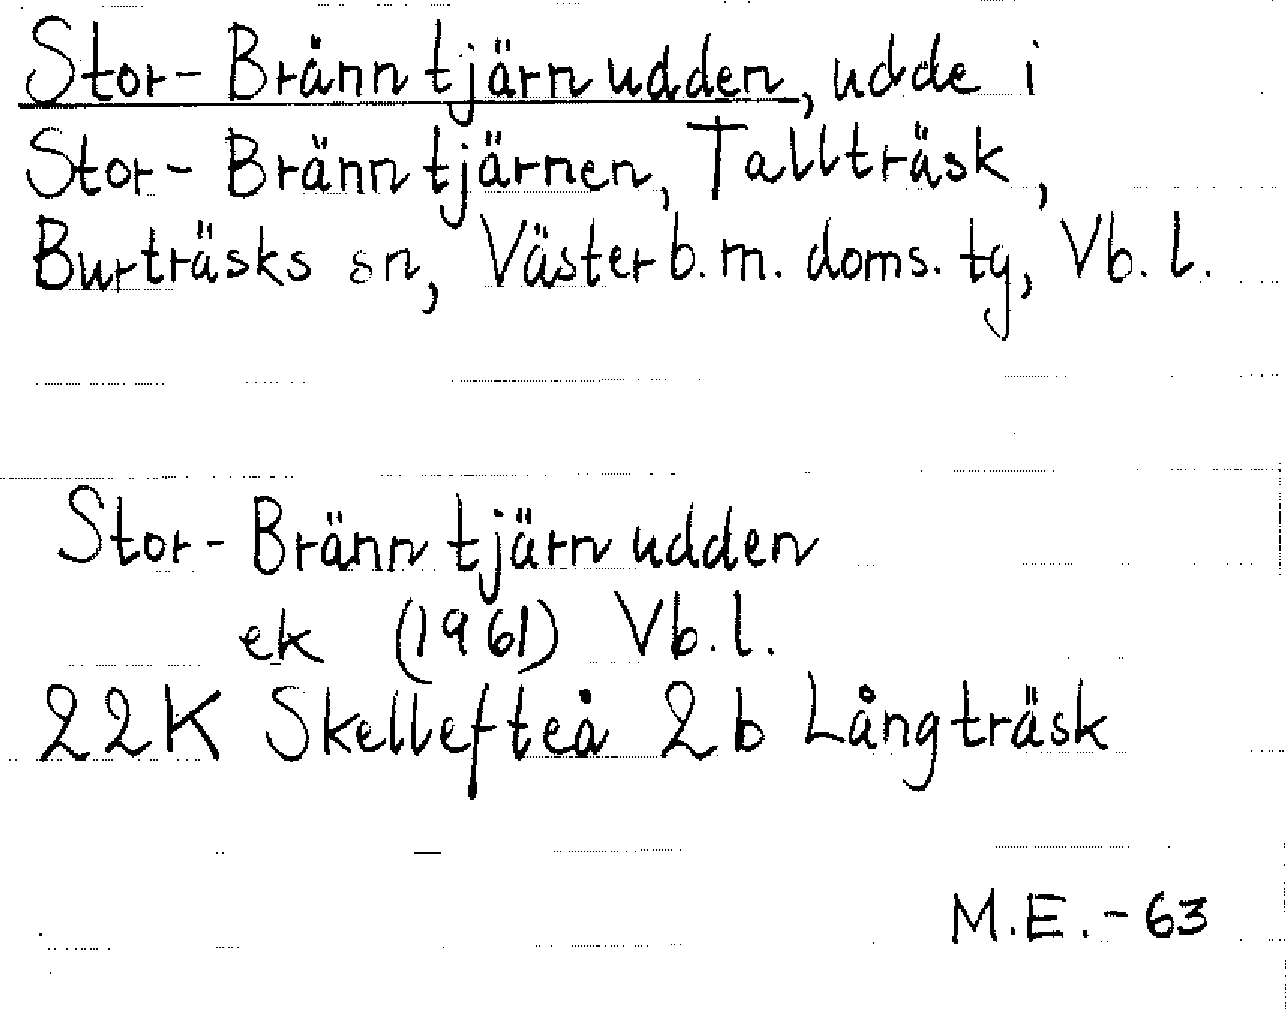 Stor-Bränntjärnudden, udde i
Stor-Bränntjärnen, Tallträsk,
Burträsks sn, Västerb.m. doms. tg, Vb. l.
Stor-Bränntjärnudden
ek (1961) Vb.l.
22K Skellefteå 2b Långträsk
M.E.-63